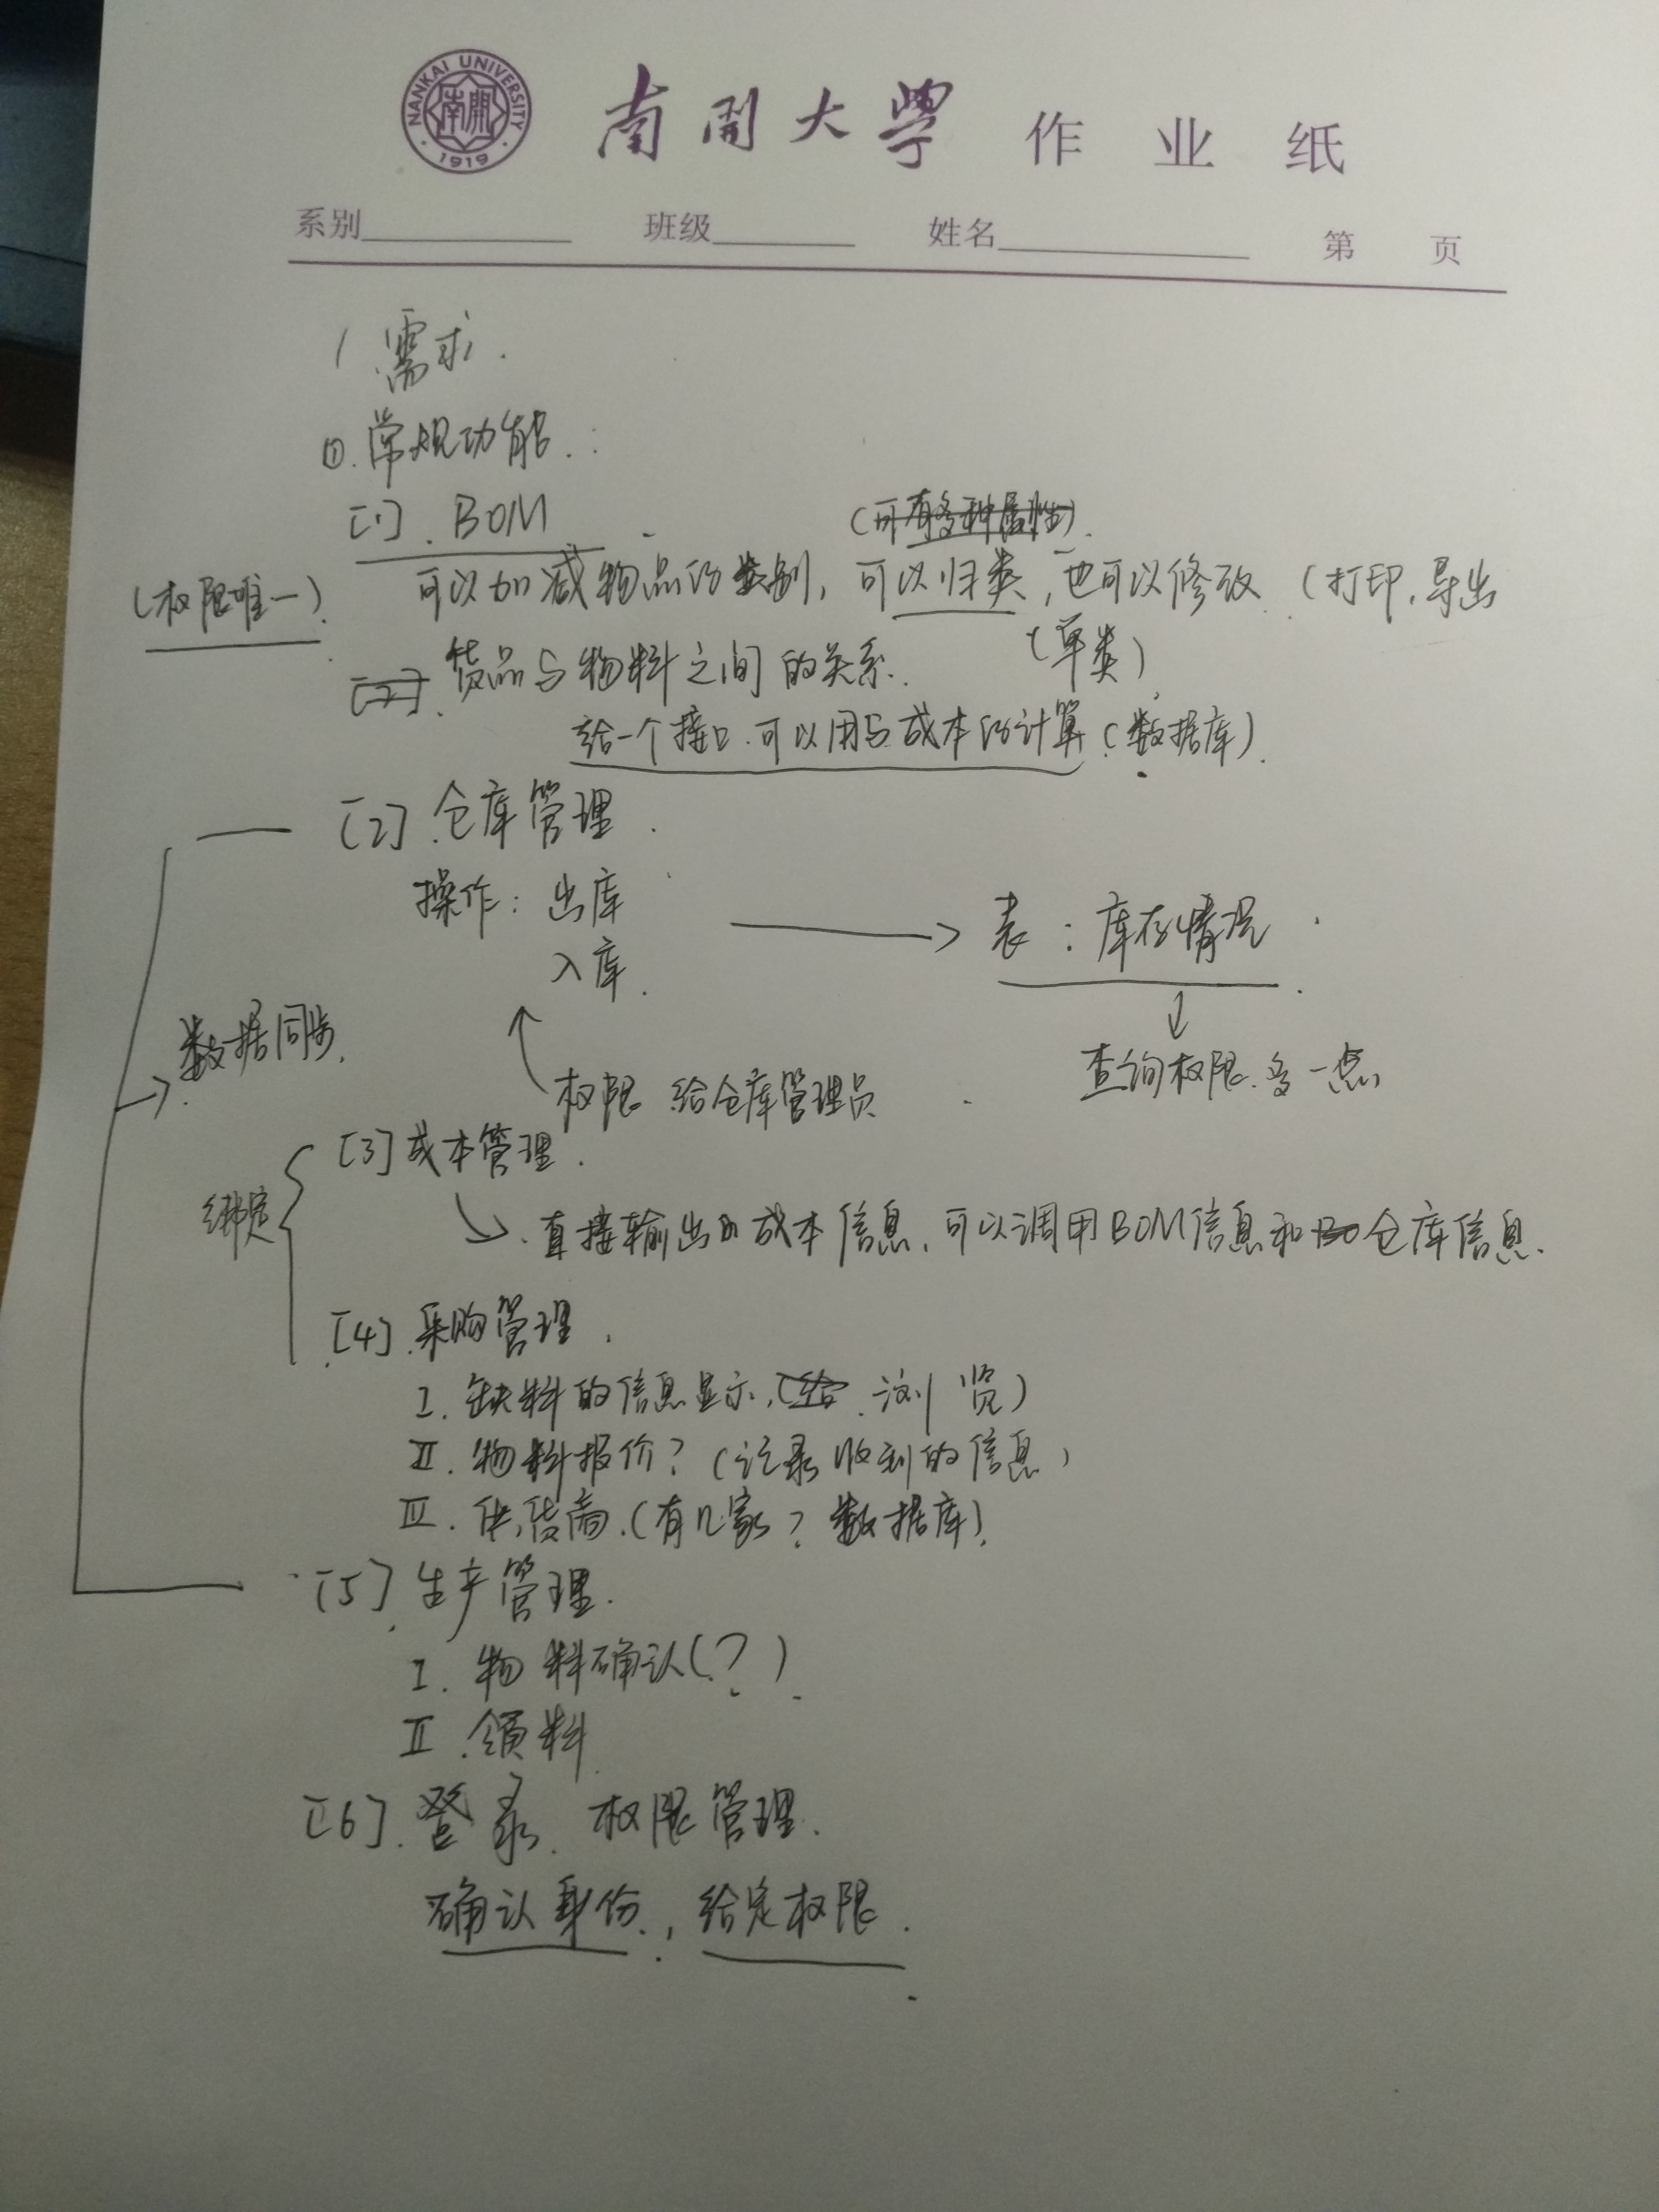 NANKAI UNIVERSITY
南開
1919
南開大學 作业纸
系别 班级 姓名 第 页
1 需求.
①.常规功能.:
[1].BOM
(可有多种属性).
(权限唯一).
可以加减物品的类别,可以归类,也可以修改 (打印,导出
(单类)
[2].货品与物料之间的关系.
给一个接口.可以用与成本的计算(数据库).
[2].仓库管理.
操作: 出库 → 表:库存情况
入库.
数据同步.
查询权限.多一点
权限 给仓库管理员
[3]成本管理.
绑定
直接输出的成本信息,可以调用BOM信息和仓库信息.
[4].采购管理.
I. 缺料的信息显示,(给.浏览)
II. 物料报价?(记录收到的信息)
III. 供货商.(有几家?数据库).
[5]生产管理.
I. 物料确认(?)
II.领料
[6].登录.权限管理.
确认身份.,给定权限.